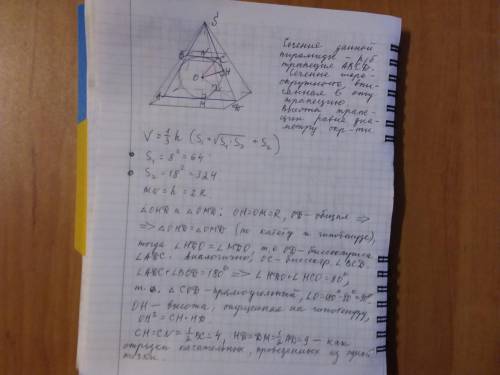 S
Сечение данной
пирамиды – р/б
трапеция ABCD.
Сечение шара –
окружность, впи-
санная в эту
трапецию.
Высота трапе-
ции равна диа-
метру окр-ти.
B N C
O H
A M D
V = 1/3 h (S₁ + √S₁·S₂ + S₂)
S₁ = 8² = 64
S₂ = 18² = 324
MN = h = 2R
△OHD и △OMD: OH=OM=R, OD – общая =>
=> △OHD=△OMD (по катету и гипотенузе),
тогда ∠HDO=∠MDO, т.е OD – биссектриса
∠ADC. Аналогично, OC – биссектр. ∠BCD.
∠ADC+∠BCD=180° => ∠HDO+∠HCO=90°,
т.е. △COD – прямоугольный, ∠O=180°-90°=90°
OH – высота, опущенная на гипотенузу,
OH² = CH·HD
CH=CN=1/2 BC=4, HD=DM=1/2 AD=9 – как
отрезки касательных, проведенных из одной
точки.